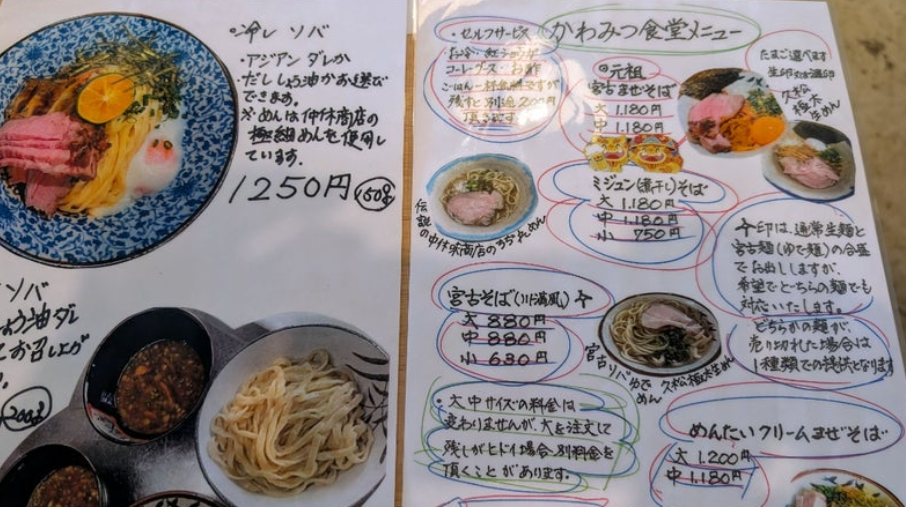 冷し ソバ
・アジアン ダレか
だししょう油かお選び
できます。
※めんは仲休商店の
極細めんを使用し
ています.
1250円 150g
ソバ
しょう油ダレ
てお召し上が
200g
・セルフサービス
お冷・紅ショウガ
コーレーグース・お酢
ごはん一杯無料ですが
残すと別途200円
頂きます
かわみつ食堂メニュー
元祖
宮古まぜそば
大 1.180円
中 1.180円
たまご選べます
久松
極太
生めん
ミジュン(煮干し)そば
大 1.180円
中 1.180円
小 750円
伝説の仲休味商店のちぢれめん
宮古そば(川満風)
大 880円
中 880円
小 630円
宮古ソバゆでめん
久松極太生めん
印は、通常生麺と
宮古麺(ゆで麺)の合盛
でお出ししますが、
希望でどちらの麺でも
対応いたします。
どちらかの麺が、
売り切れた場合は
1種類での提供となります
・大中サイズの料金は
変わりませんが、大を注文して
残しがヒドイ場合、別料金を
頂くことがあります。
めんたいクリームまぜそば
大 1.200円
中 1.180円